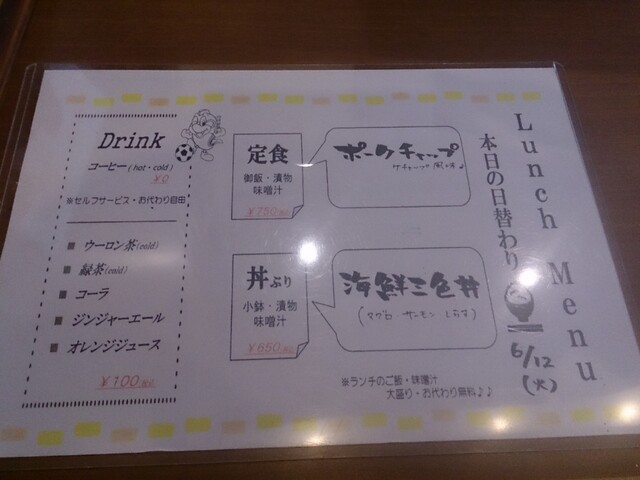 Lunch Menu
本日の日替わり
6/12
(火)
定食
御飯・漬物
味噌汁
￥750(税込)
ポークチャップ
ケチャップ風味♪
丼ぶり
小鉢・漬物
味噌汁
￥650(税込)
海鮮三色丼
(マグロ サーモン しらす)
※ランチのご飯・味噌汁
大盛り・お代わり無料♪♪
Drink
コーヒー(hot・cold)
￥0
※セルフサービス・お代わり自由
■ ウーロン茶(cold)
■ 緑茶(cold)
■ コーラ
■ ジンジャーエール
■ オレンジジュース
￥100(税込)